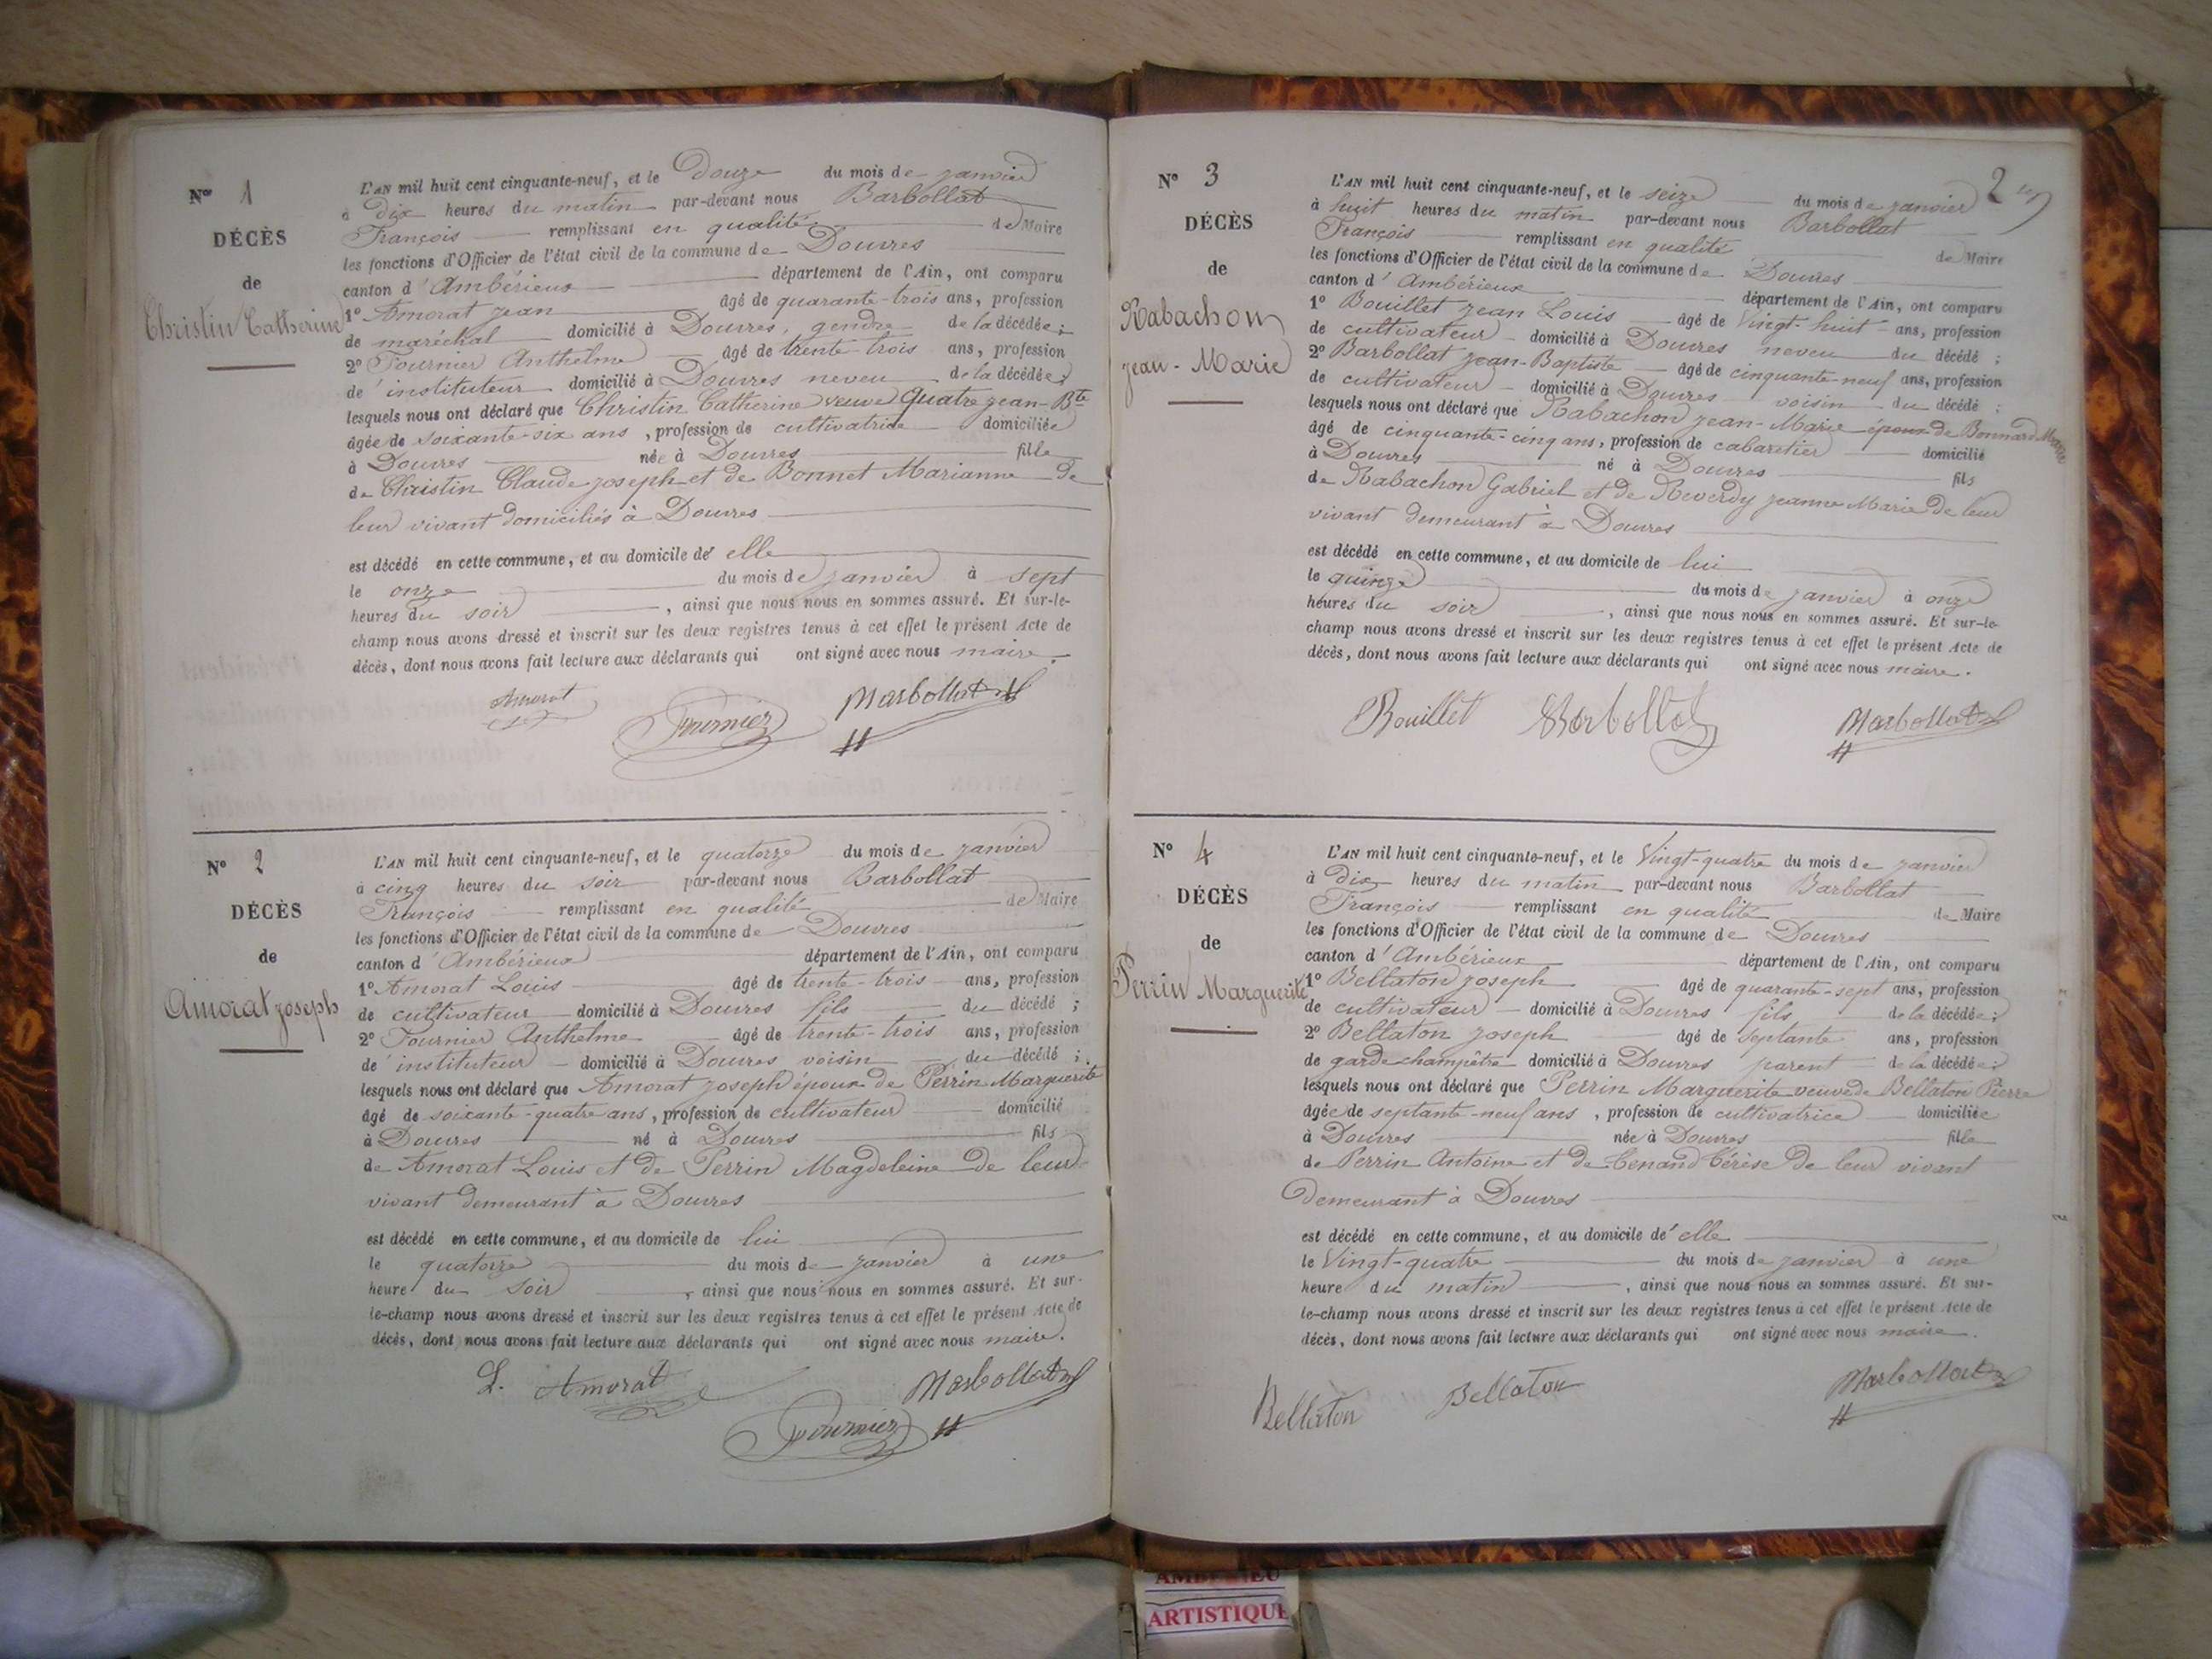 N° 1
DÉCÈS
de
Christin Catherine
L'AN mil huit cent cinquante-neuf, et le Douze du mois de janvier
à Dix heures du matin par-devant nous Barbollat
François remplissant en qualité de Maire
les fonctions d'Officier de l'état civil de la commune de Douvres
canton d'Ambérieux département de l'Ain, ont comparu
1° Amorat jean âgé de quarante-trois ans, profession
de maréchal domicilié à Douvres, gendre de la décédée;
2° Fournier Anthelme âgé de trente-trois ans, profession
de instituteur domicilié à Douvres neveu de la décédée;
lesquels nous ont déclaré que Christin Catherine veuve Quatre jean-Bte
âgée de soixante-six ans, profession de cultivatrice domiciliée
à Douvres née à Douvres fille
de Christin Claude joseph et de Bonnet Marianne de
leur vivant domiciliés à Douvres
est décédé en cette commune, et au domicile de elle
le onze du mois de janvier à sept
heures du soir, ainsi que nous nous en sommes assuré. Et sur-le-
champ nous avons dressé et inscrit sur les deux registres tenus à cet effet le présent Acte de
décès, dont nous avons fait lecture aux déclarants qui ont signé avec nous maire.
Amorat Fournier Barbollat
N° 2
DÉCÈS
de
Amorat joseph
L'AN mil huit cent cinquante-neuf, et le quatorze du mois de janvier
à cinq heures du soir par-devant nous Barbollat
François remplissant en qualité de Maire
les fonctions d'Officier de l'état civil de la commune de Douvres
canton d'Ambérieux département de l'Ain, ont comparu
1° Amorat Louis âgé de trente-trois ans, profession
de cultivateur domicilié à Douvres fils du décédé;
2° Fournier Anthelme âgé de trente-trois ans, profession
de instituteur domicilié à Douvres voisin du décédé;
lesquels nous ont déclaré que Amorat joseph époux de Perrin Marguerite
âgé de soixante-quatre ans, profession de cultivateur domicilié
à Douvres né à Douvres fils
de Amorat Louis et de Perrin Magdeleine de leur
vivant demeurant à Douvres
est décédé en cette commune, et au domicile de lui
le quatorze du mois de janvier à une
heure du soir, ainsi que nous nous en sommes assuré. Et sur-
le-champ nous avons dressé et inscrit sur les deux registres tenus à cet effet le présent Acte de
décès, dont nous avons fait lecture aux déclarants qui ont signé avec nous maire.
L. Amorat Barbollat
Fournier
2
N° 3
DÉCÈS
de
Rabachon
jean-Marie
L'AN mil huit cent cinquante-neuf, et le seize du mois de janvier
à huit heures du matin par-devant nous Barbollat
François remplissant en qualité de Maire
les fonctions d'Officier de l'état civil de la commune de Douvres
canton d'Ambérieux département de l'Ain, ont comparu
1° Bouillet jean Louis âgé de Vingt-huit ans, profession
de cultivateur domicilié à Douvres neveu du décédé;
2° Barbollat jean-Baptiste âgé de cinquante-neuf ans, profession
de cultivateur domicilié à Douvres voisin du décédé;
lesquels nous ont déclaré que Rabachon jean-Marie époux de Bonnard
âgé de cinquante-cinq ans, profession de cabaretier domicilié
à Douvres né à Douvres fils
de Rabachon Gabriel et de Reverdy jeanne Marie de leur
vivant demeurant à Douvres
est décédé en cette commune, et au domicile de lui
le quinze du mois de janvier à onze
heures du soir, ainsi que nous nous en sommes assuré. Et sur-le-
champ nous avons dressé et inscrit sur les deux registres tenus à cet effet le présent Acte de
décès, dont nous avons fait lecture aux déclarants qui ont signé avec nous maire.
Bouillet Barbollat Barbollat
N° 4
DÉCÈS
de
Perrin Marguerite
L'AN mil huit cent cinquante-neuf, et le Vingt-quatre du mois de janvier
à Dix heures du matin par-devant nous Barbollat
François remplissant en qualité de Maire
les fonctions d'Officier de l'état civil de la commune de Douvres
canton d'Ambérieux département de l'Ain, ont comparu
1° Bellaton joseph âgé de quarante-sept ans, profession
de cultivateur domicilié à Douvres fils de la décédée;
2° Bellaton joseph âgé de septante ans, profession
de garde champêtre domicilié à Douvres parent de la décédée;
lesquels nous ont déclaré que Perrin Marguerite veuve de Bellaton Pierre
âgée de septante-neuf ans, profession de cultivatrice domiciliée
à Douvres née à Douvres fille
de Perrin Antoine et de Cenand Térèse de leur vivant
demeurant à Douvres
est décédé en cette commune, et au domicile d'elle
le Vingt-quatre du mois de janvier à une
heure du matin, ainsi que nous nous en sommes assuré. Et sur-
le-champ nous avons dressé et inscrit sur les deux registres tenus à cet effet le présent Acte de
décès, dont nous avons fait lecture aux déclarants qui ont signé avec nous maire.
Bellaton Bellaton Barbollat
ARTISTIQUE